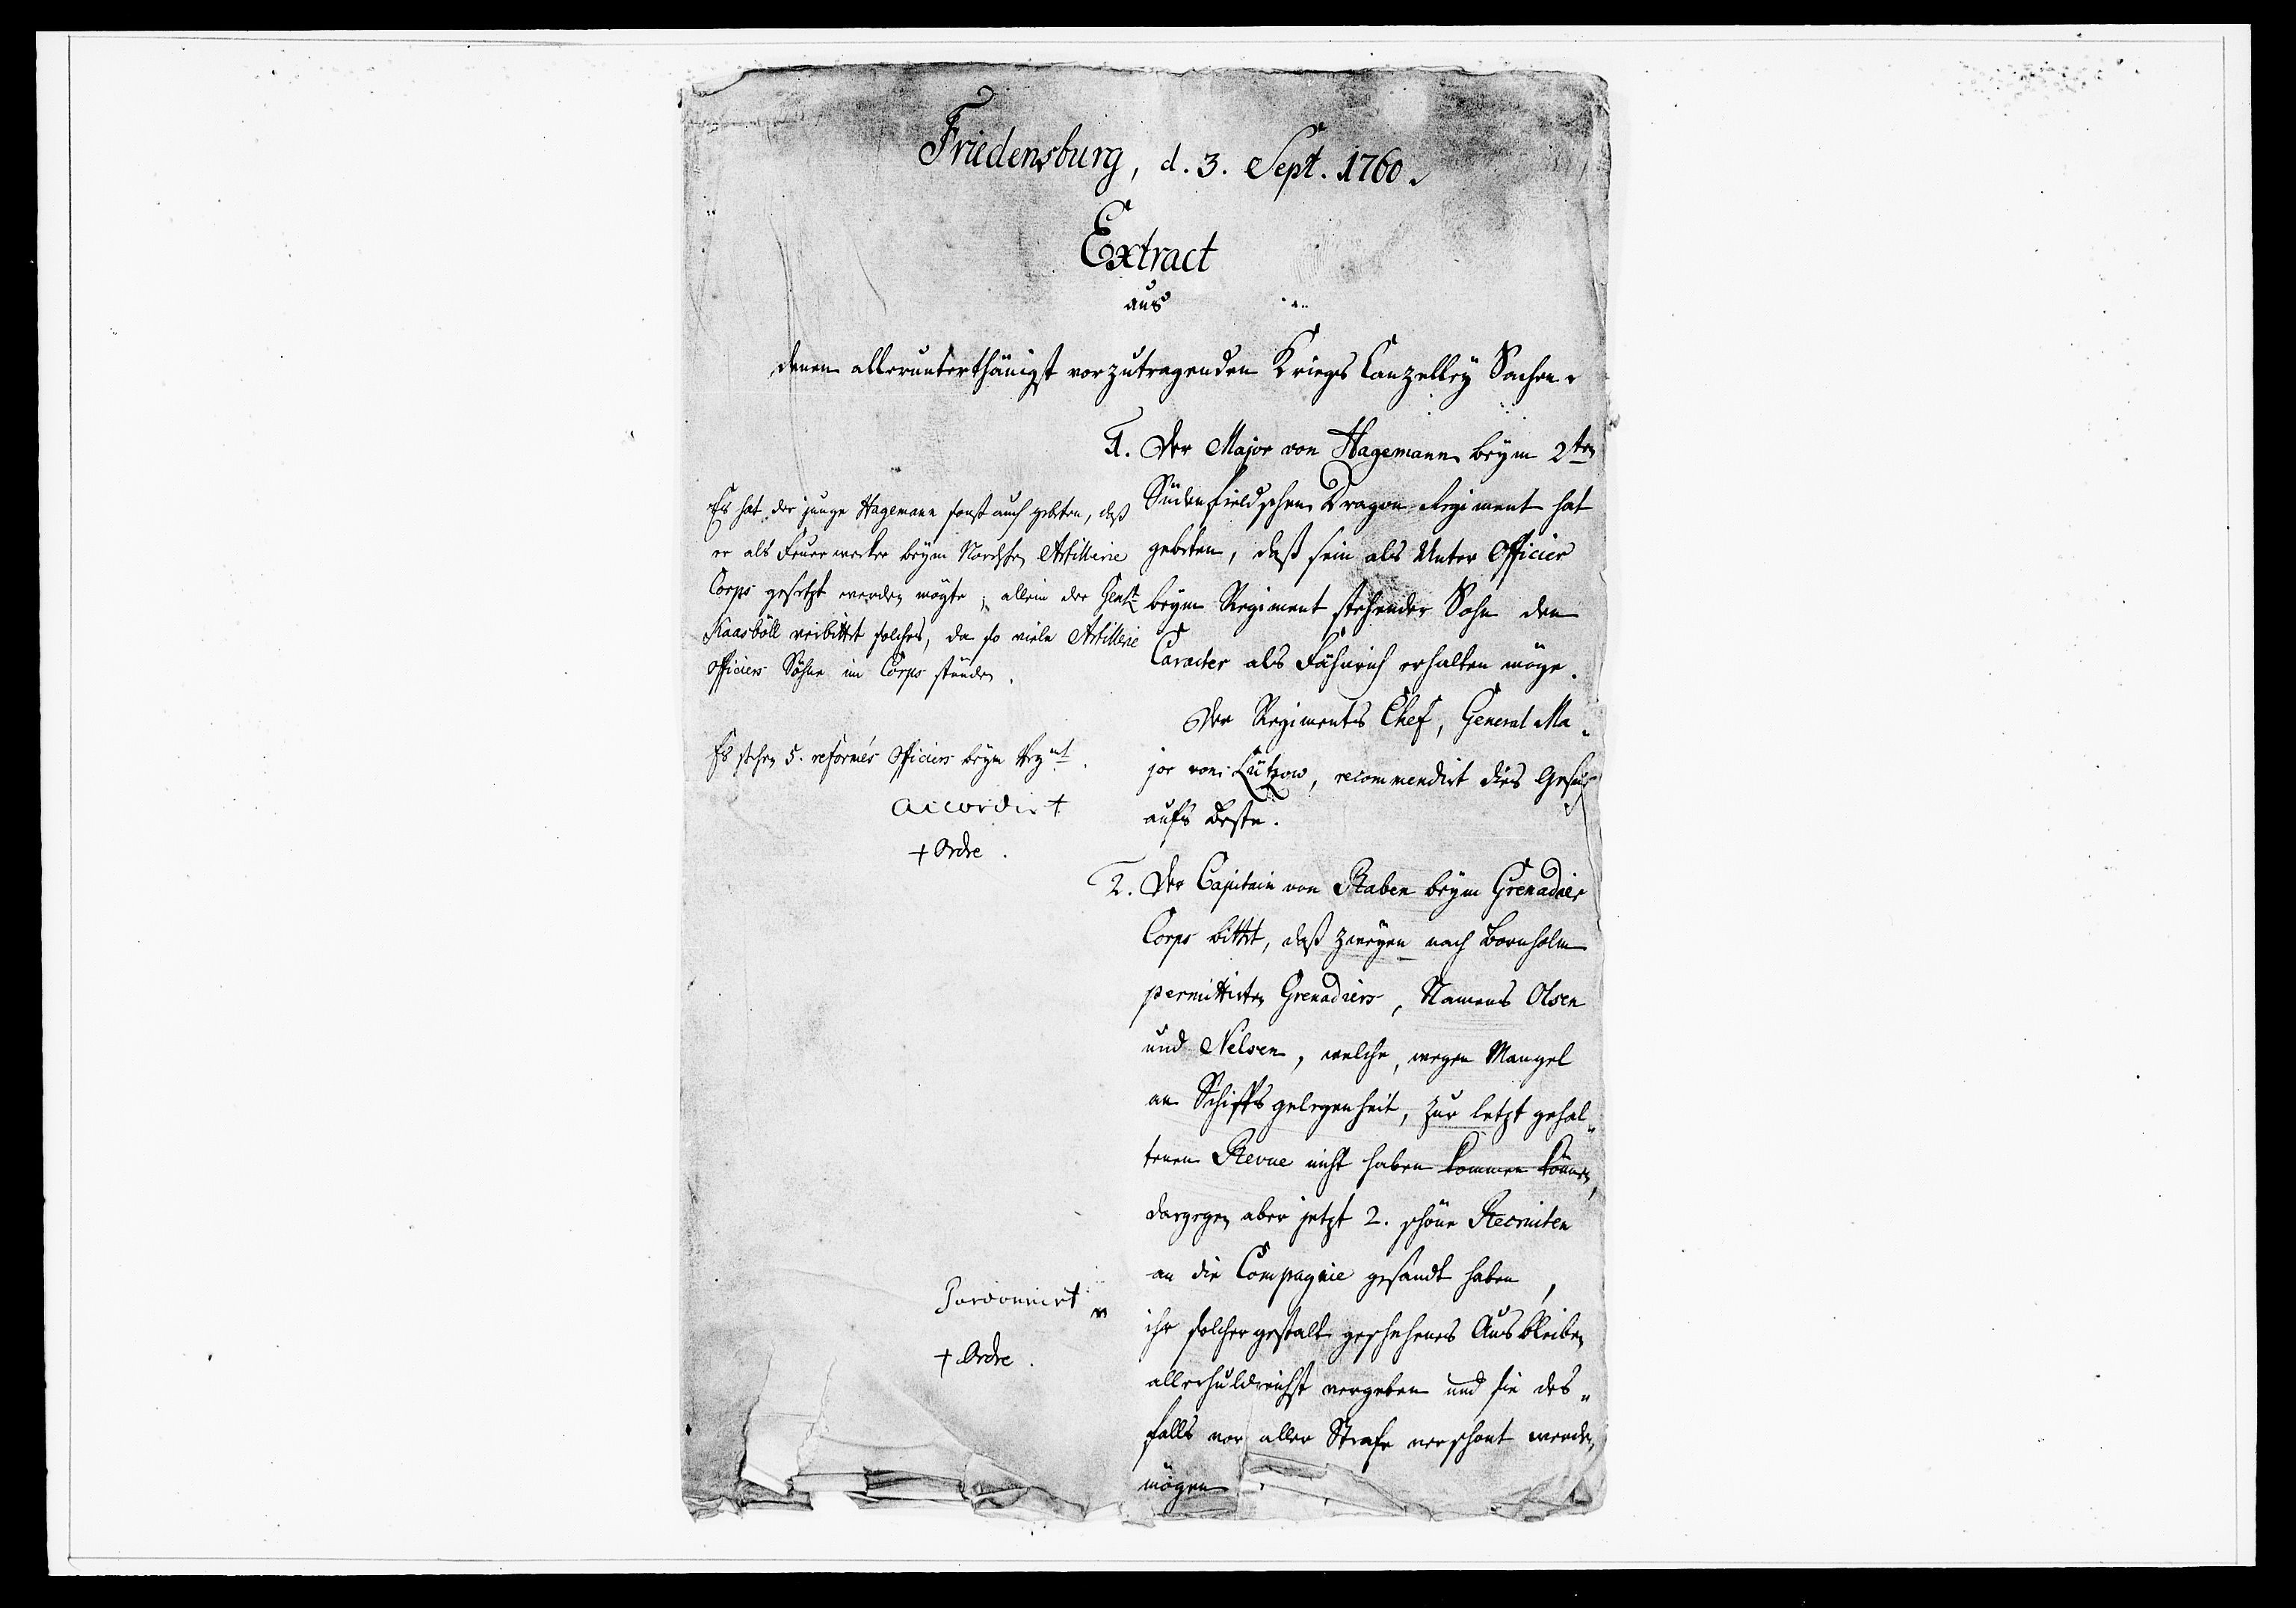 Friedensburg, d. 3. Sept. 1760.
Extract
aus
denen allerunterthänigst vorzutragenden Kriegs Canzelley Sachen.
1. Der Major von Hagemann beym 2ten
Südenfieldschen Dragon Regiment hat
gebeten, daß sein als Unter Officier
beym Regiment stehender Sohn den
Caracter als Fähnrich erhalten möge.
Der Regiments Chef, General Ma-
jor von Lützow, recommendirt dies Gesuch
aufs beste.
Es hat der junge Hagemann sonst auch gebeten, daß
er als Feuerwerker beym Nordschen Artillerie
Corps gesetzt werden mögte; allein der Genlt
Kaasböll verbittet solches, da so viele Artillerie
Officiers Söhne im Corps stünden.
Es stehen 5. reformés Officiers beym Regmt.
Accordirt
+ Ordre.
2. Der Capitain von Raben beym Grenadier
Corps bittet, daß zweyen nach Bornholm
permittirten Grenadiers, Namens Olsen
und Nelsen, welche, wegen Mangel
an Schiffsgelegenheit, zur letzt gehal-
tenen Revue nicht haben kommen können,
dargegen aber jetzt 2. schöne Recruiten
an die Compagnie gesandt haben,
ihr solchergestalt geschehenes Ausbleiben
allerhuldreichst vergeben und sie des-
falls vor aller Strafe verschont werden
mögen.
Pardonnirt
+ Ordre.